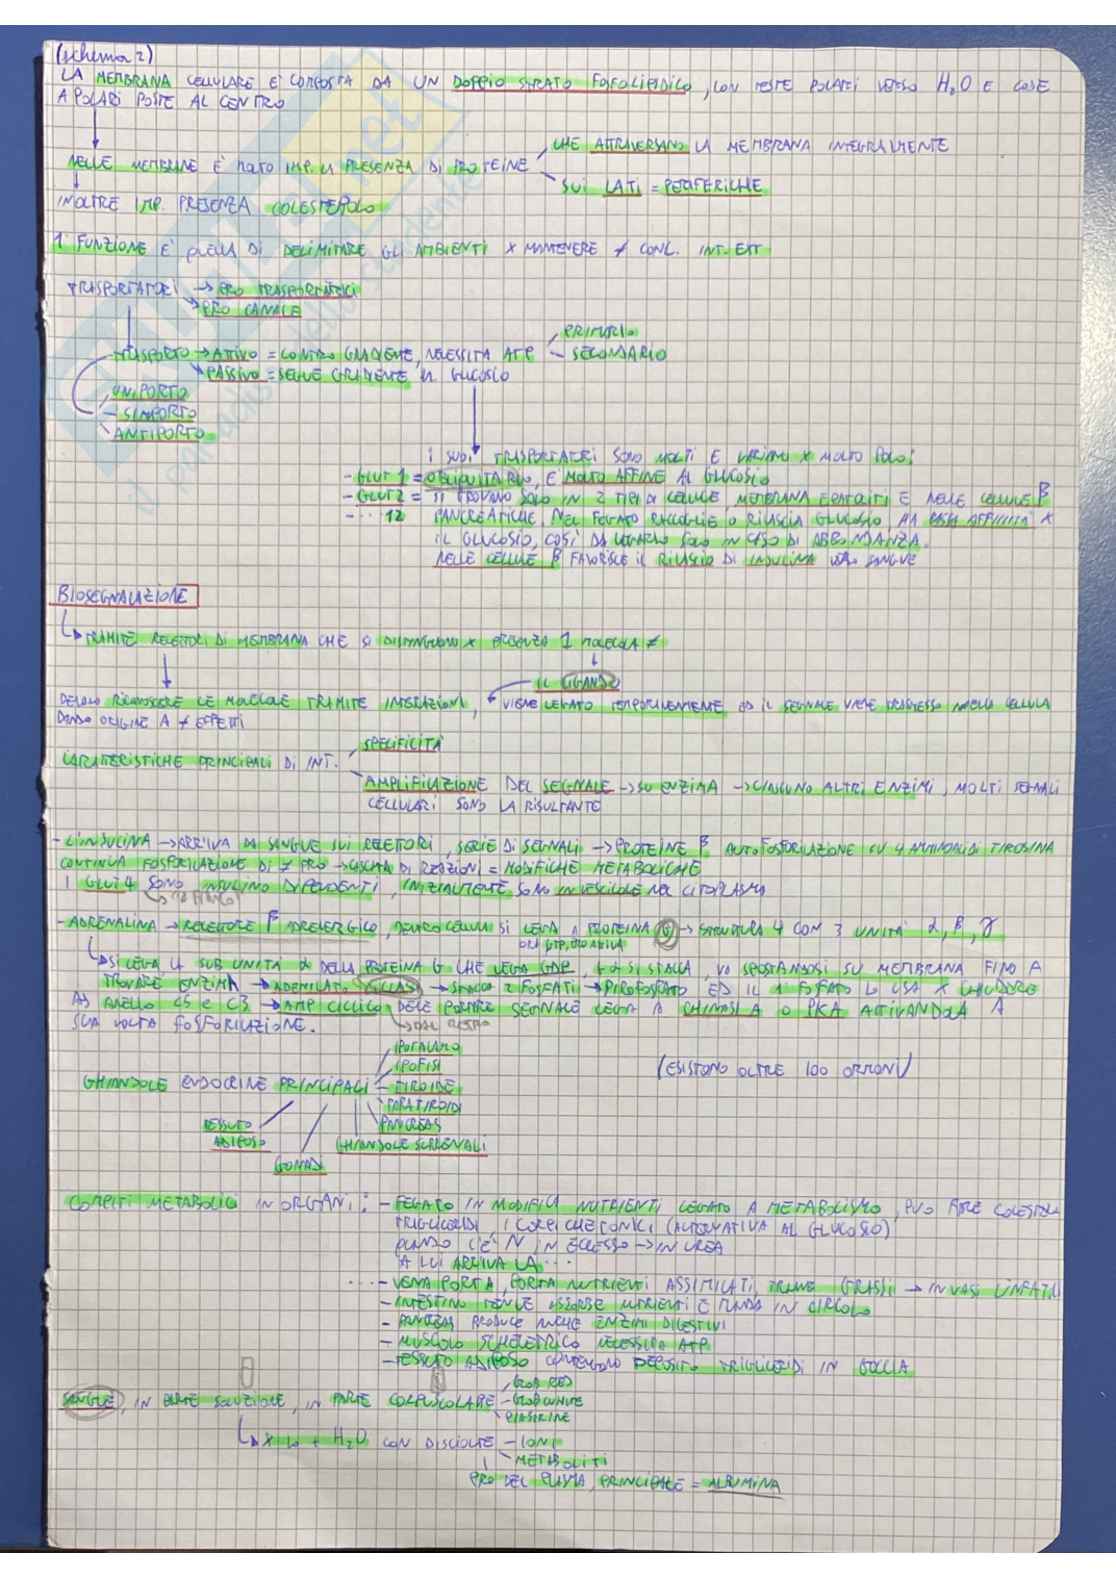 (schema 2)
LA MEMBRANA CELLULARE E' COMPOSTA DA UN DOPPIO STRATO FOSFOLIPIDICO, CON TESTE POLARI VERSO H2O E CODE
APOLARI POSTE AL CENTRO
NELLE MEMBRANE È MOLTO IMP. LA PRESENZA DI PROTEINE
CHE ATTRAVERSANO LA MEMBRANA INTEGRALMENTE
SUI LATI = PERIFERICHE
INOLTRE IMP. PRESENZA COLESTEROLO
1° FUNZIONE E' QUELLA DI DELIMITARE GLI AMBIENTI X MANTENERE ≠ CONC. INT. EXT
TRASPORTATORI → PRO TRASPORTATRICI
PRO CANALE
TRASPORTO → ATTIVO = CONTRO GRADIENTE, NECESSITA ATP
PRIMARIO
SECONDARIO
PASSIVO = SEGUE GRADIENTE IL GLUCOSIO
UNIPORTO
- SIMPORTO
ANTIPORTO
I SUOI TRASPORTATORI SONO MOLTI E VARIANO X MOLTO POCO:
- GLUT 1 = , E' MOLTO AFFINE AL GLUCOSIO
- GLUT 2 = SI TROVANO SOLO IN 2 TIPI DI CELLULE MEMBRANA EPATOCITI E NELLE CELLULE β
- ... 12 PANCREATICHE. NEL FEGATO RACCOGLIE O RILASCIA GLUCOSIO, HA BASSA AFFINITÀ X
IL GLUCOSIO, COSÌ DA LEGARLO SOLO IN CASO DI ABBONDANZA.
NELLE CELLULE β FAVORISCE IL RILASCIO DI INSULINA VERSO SANGUE
BIOSEGNALAZIONE
TRAMITE RECETTORI DI MEMBRANA CHE SI DISTINGUONO X PRESENZA 1 MOLECOLA ≠
IL LIGANDO
DEVONO RICONOSCERE LE MOLECOLE TRAMITE INTERAZIONI, VIENE LEGATO TEMPORANEAMENTE ED IL SEGNALE VIENE TRASMESSO NELLA CELLULA
DANDO ORIGINE A ≠ EFFETTI
CARATTERISTICHE PRINCIPALI DI INT.
SPECIFICITÀ
AMPLIFICAZIONE DEL SEGNALE → SU ENZIMA → CIASCUNO ALTRI ENZIMI, MOLTI SEGNALI
CELLULARI SONO LA RISULTANTE
- L'INSULINA → ARRIVA DA SANGUE SUI RECETTORI, SERIE DI SEGNALI → PROTEINE β AUTOFOSFORILAZIONE SU 4 AMINOACIDI TIROSINA
CONTINUA FOSFORILAZIONE DI ≠ PRO → CASCATA DI REAZIONI = MODIFICHE METABOLICHE
I GLUT 4 SONO INSULINO DIPENDENTI, INIZIALMENTE SONO IN VESCICOLE NEL CITOPLASMA
- ADRENALINA → RECETTORE β ADRENERGICO, DENTRO CELLULA SI LEGA A PROTEINA G → STRUTTURA 4 CON 3 UNITÀ α, β, γ
SI LEGA LA SUB UNITÀ α DELLA PROTEINA G CHE LEGA GDP, SI STACCA, VA SPOSTANDOSI SU MEMBRANA FINO A
TROVARE ENZIMA → ADENILATO CICLASI → STACCA 2 FOSFATI → PIROFOSFATO ED IL 1 FOSFATO LO USA X CHIUDERE
AD ANELLO C5 E C3 → AMP CICLICO DEVE PORTARE SEGNALE LEGA A CHINASI A O PKA ATTIVANDOLA A
SUA VOLTA FOSFORILAZIONE.
GHIANDOLE ENDOCRINE PRINCIPALI
IPOTALAMO
IPOFISI
TIROIDE
PARATIROIDI
PANCREAS
GHIANDOLE SURRENALI
GONADI
TESSUTO
ADIPOSO
(ESISTONO OLTRE 100 ORMONI)
COMPITI METABOLICI IN ORGANI: - FEGATO IN MODIFICA NUTRIENTI LEGATO A METABOLISMO, PUÒ FARE COLESTEROLO
TRIGLICERIDI, I CORPI CHETONICI (ALTERNATIVA AL GLUCOSIO)
QUANDO C'È N IN ECCESSO → IN UREA
A LUI ARRIVA LA ...
... - VENA PORTA, PORTA NUTRIENTI ASSIMILATI, TRANNE GRASSI → IN VASI LINFATICI
- INTESTINO TENUE ASSORBE NUTRIENTI E MANDA IN CIRCOLO
- PANCREAS PRODUCE ANCHE ENZIMI DIGESTIVI
- MUSCOLO SCHELETRICO NECESSITA ATP
- TESSUTO ADIPOSO CONTENGONO DEPOSITO TRIGLICERIDI IN GOCCIA
SANGUE, IN PARTE SOLUZIONE, IN PARTE CORPUSCOLARE
GLOB RED
- GLOB WHITE
PIASTRINE
X LO + H2O CON DISCIOLTE - IONI
METABOLITI
PRO DEL PLASMA, PRINCIPALE = ALBUMINA